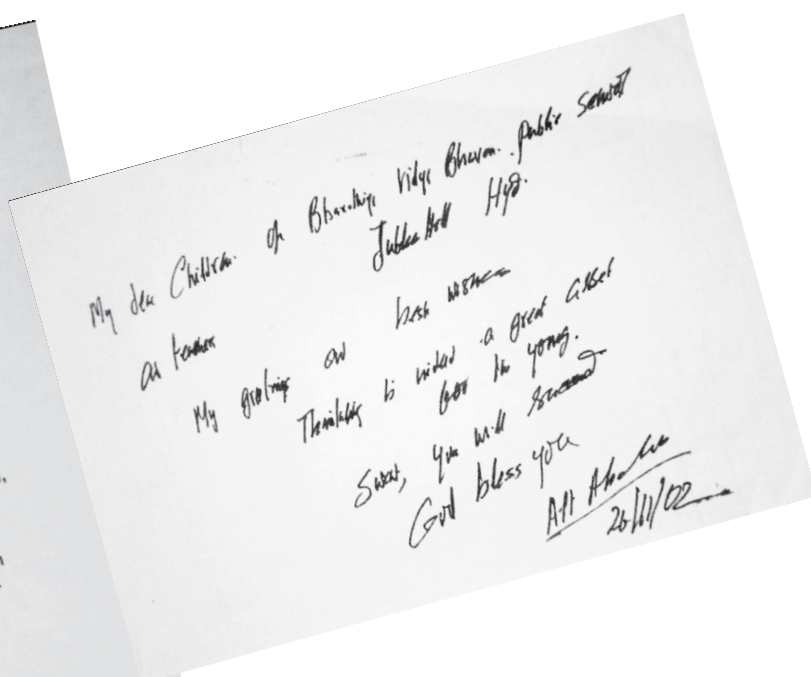 My dear Children of Bharathiya Vidya Bhavan. Public School
Jublee Hill Hyd.
My greetings and best wishes
Thinking is indeed a great asset
for the young.
Sweat, you will succeed
God bless you
26/11/02